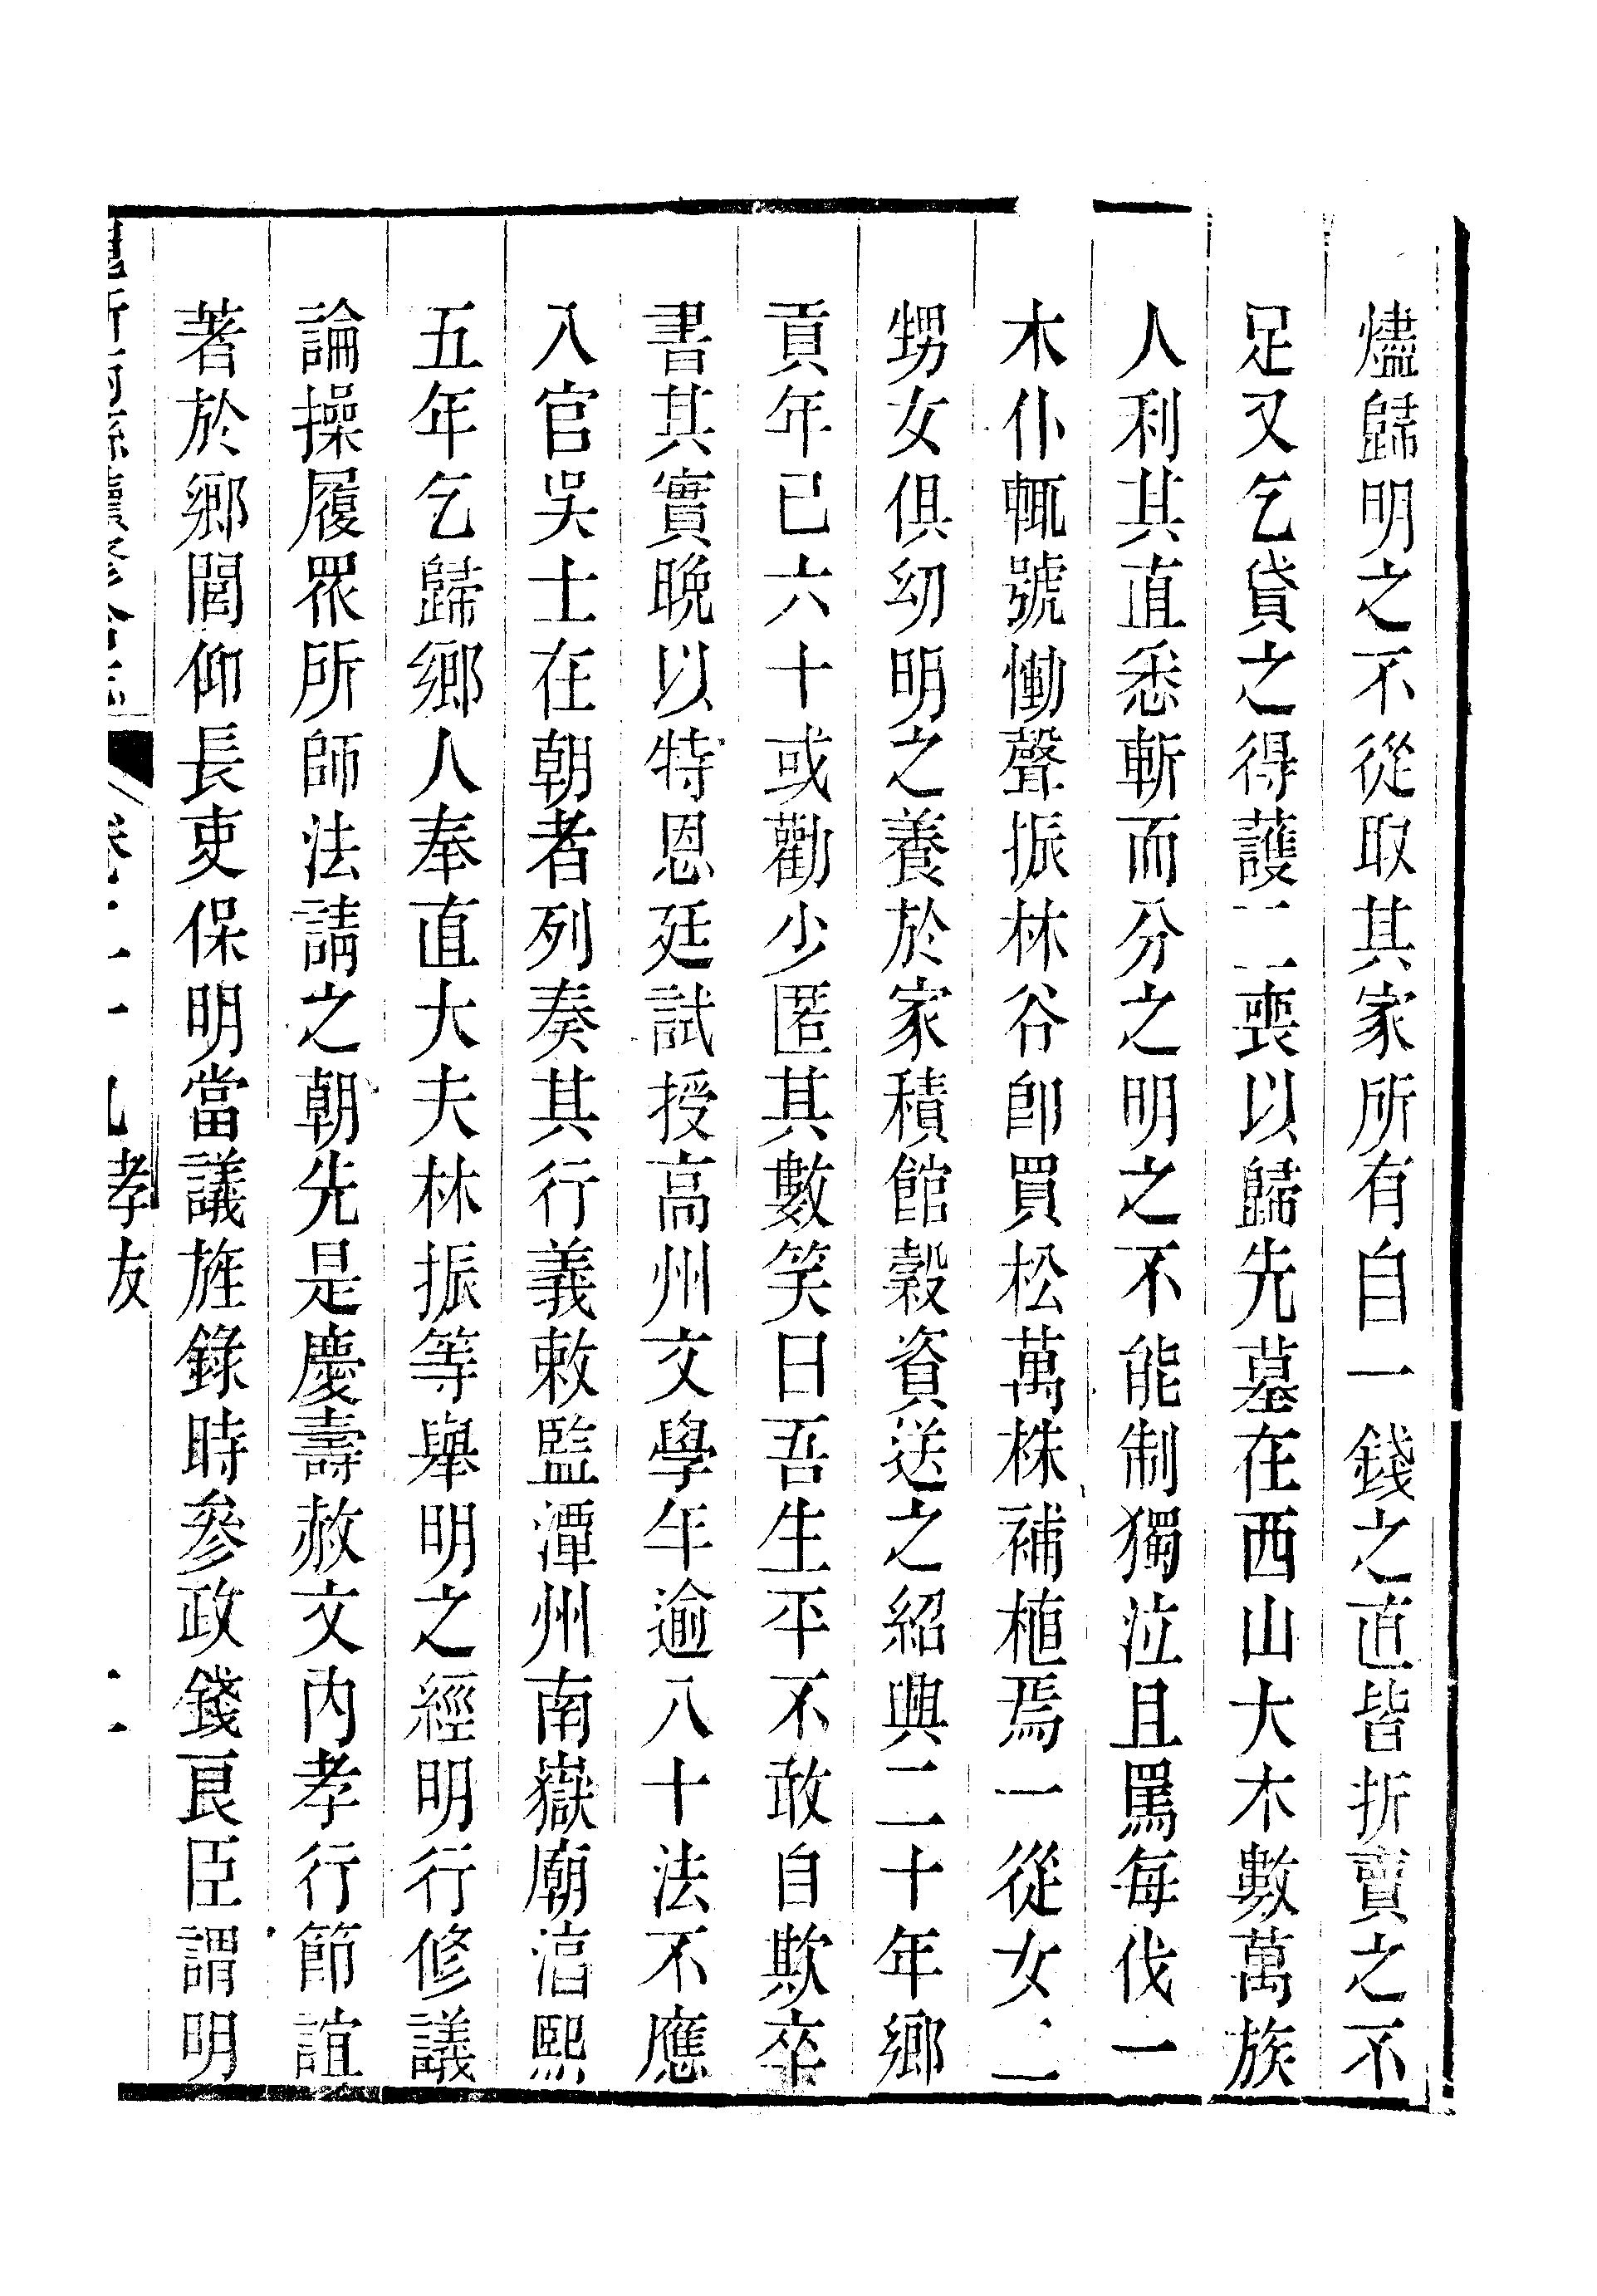 燼歸明之不從取其家所有自一錢之直皆折賣之不
足又乞貸之得護二喪以歸先墓在西山大木數萬族
人利其直悉斬而分之明之不能制獨泣且罵每伐一
木仆輒號慟聲振林谷卽買松萬株補植焉一從女二
甥女俱幼明之養於家積館穀資送之紹興二十年鄉
貢年已六十或勸少匿其數笑曰吾生平不敢自欺卒
書其實晚以特恩廷試授高州文學年逾八十法不應
入官吳士在朝者列奏其行義敕監潭州南嶽廟淳熙
五年乞歸鄉人奉直大夫林振等舉明之經明行修議
論操履眾所師法請之朝先是慶壽赦文內孝行節誼
著於鄉閭仰長吏保明當議旌錄時參政錢良臣謂明
孝友